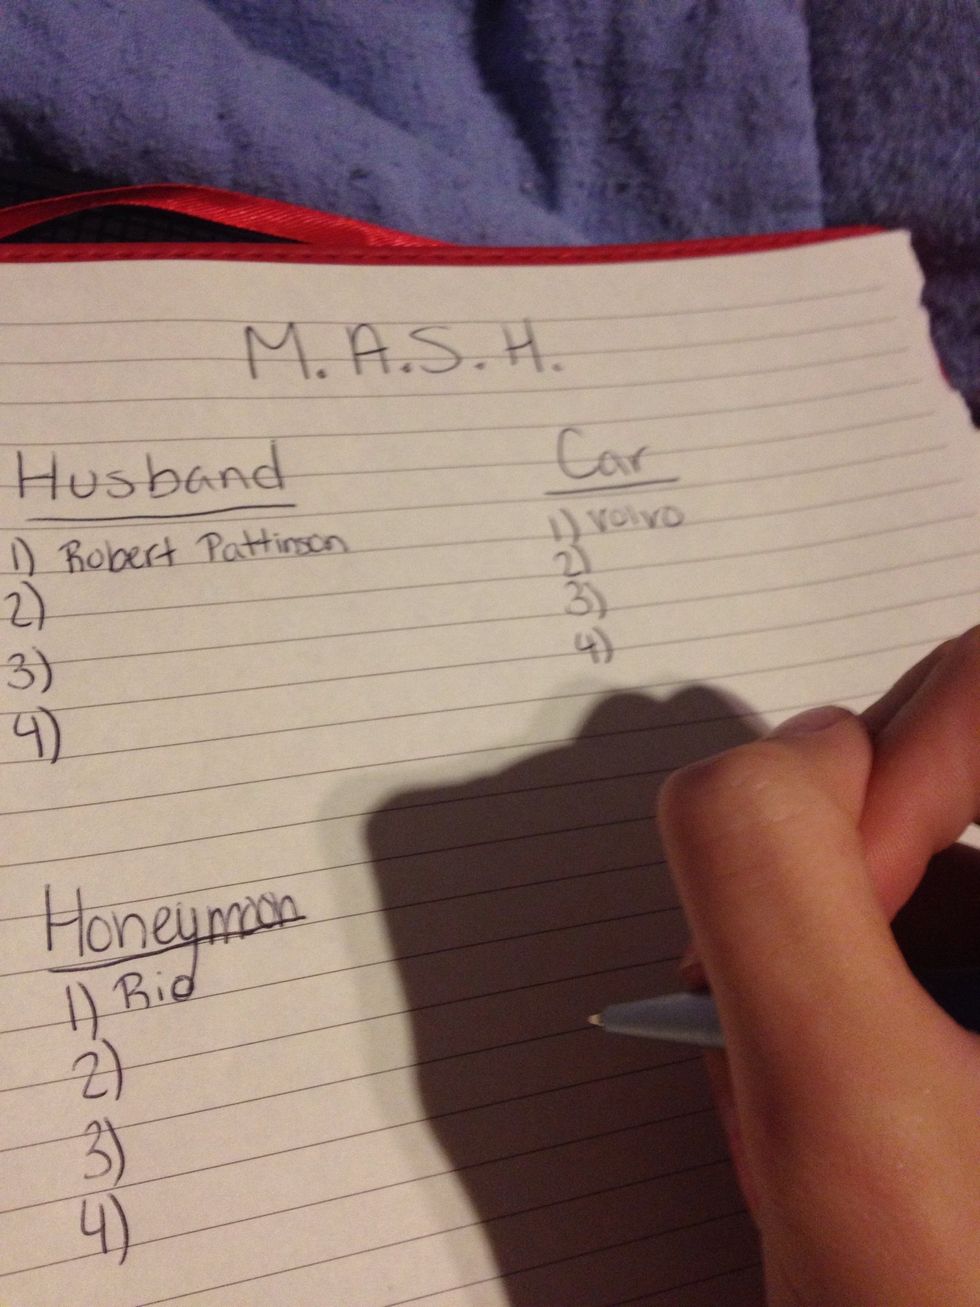 M.A.S.H.
Husband
1) Robert Pattinson
2)
3)
4)
Car
1) Volvo
2)
3)
4)
Honeymoon
1) Rio
2)
3)
4)